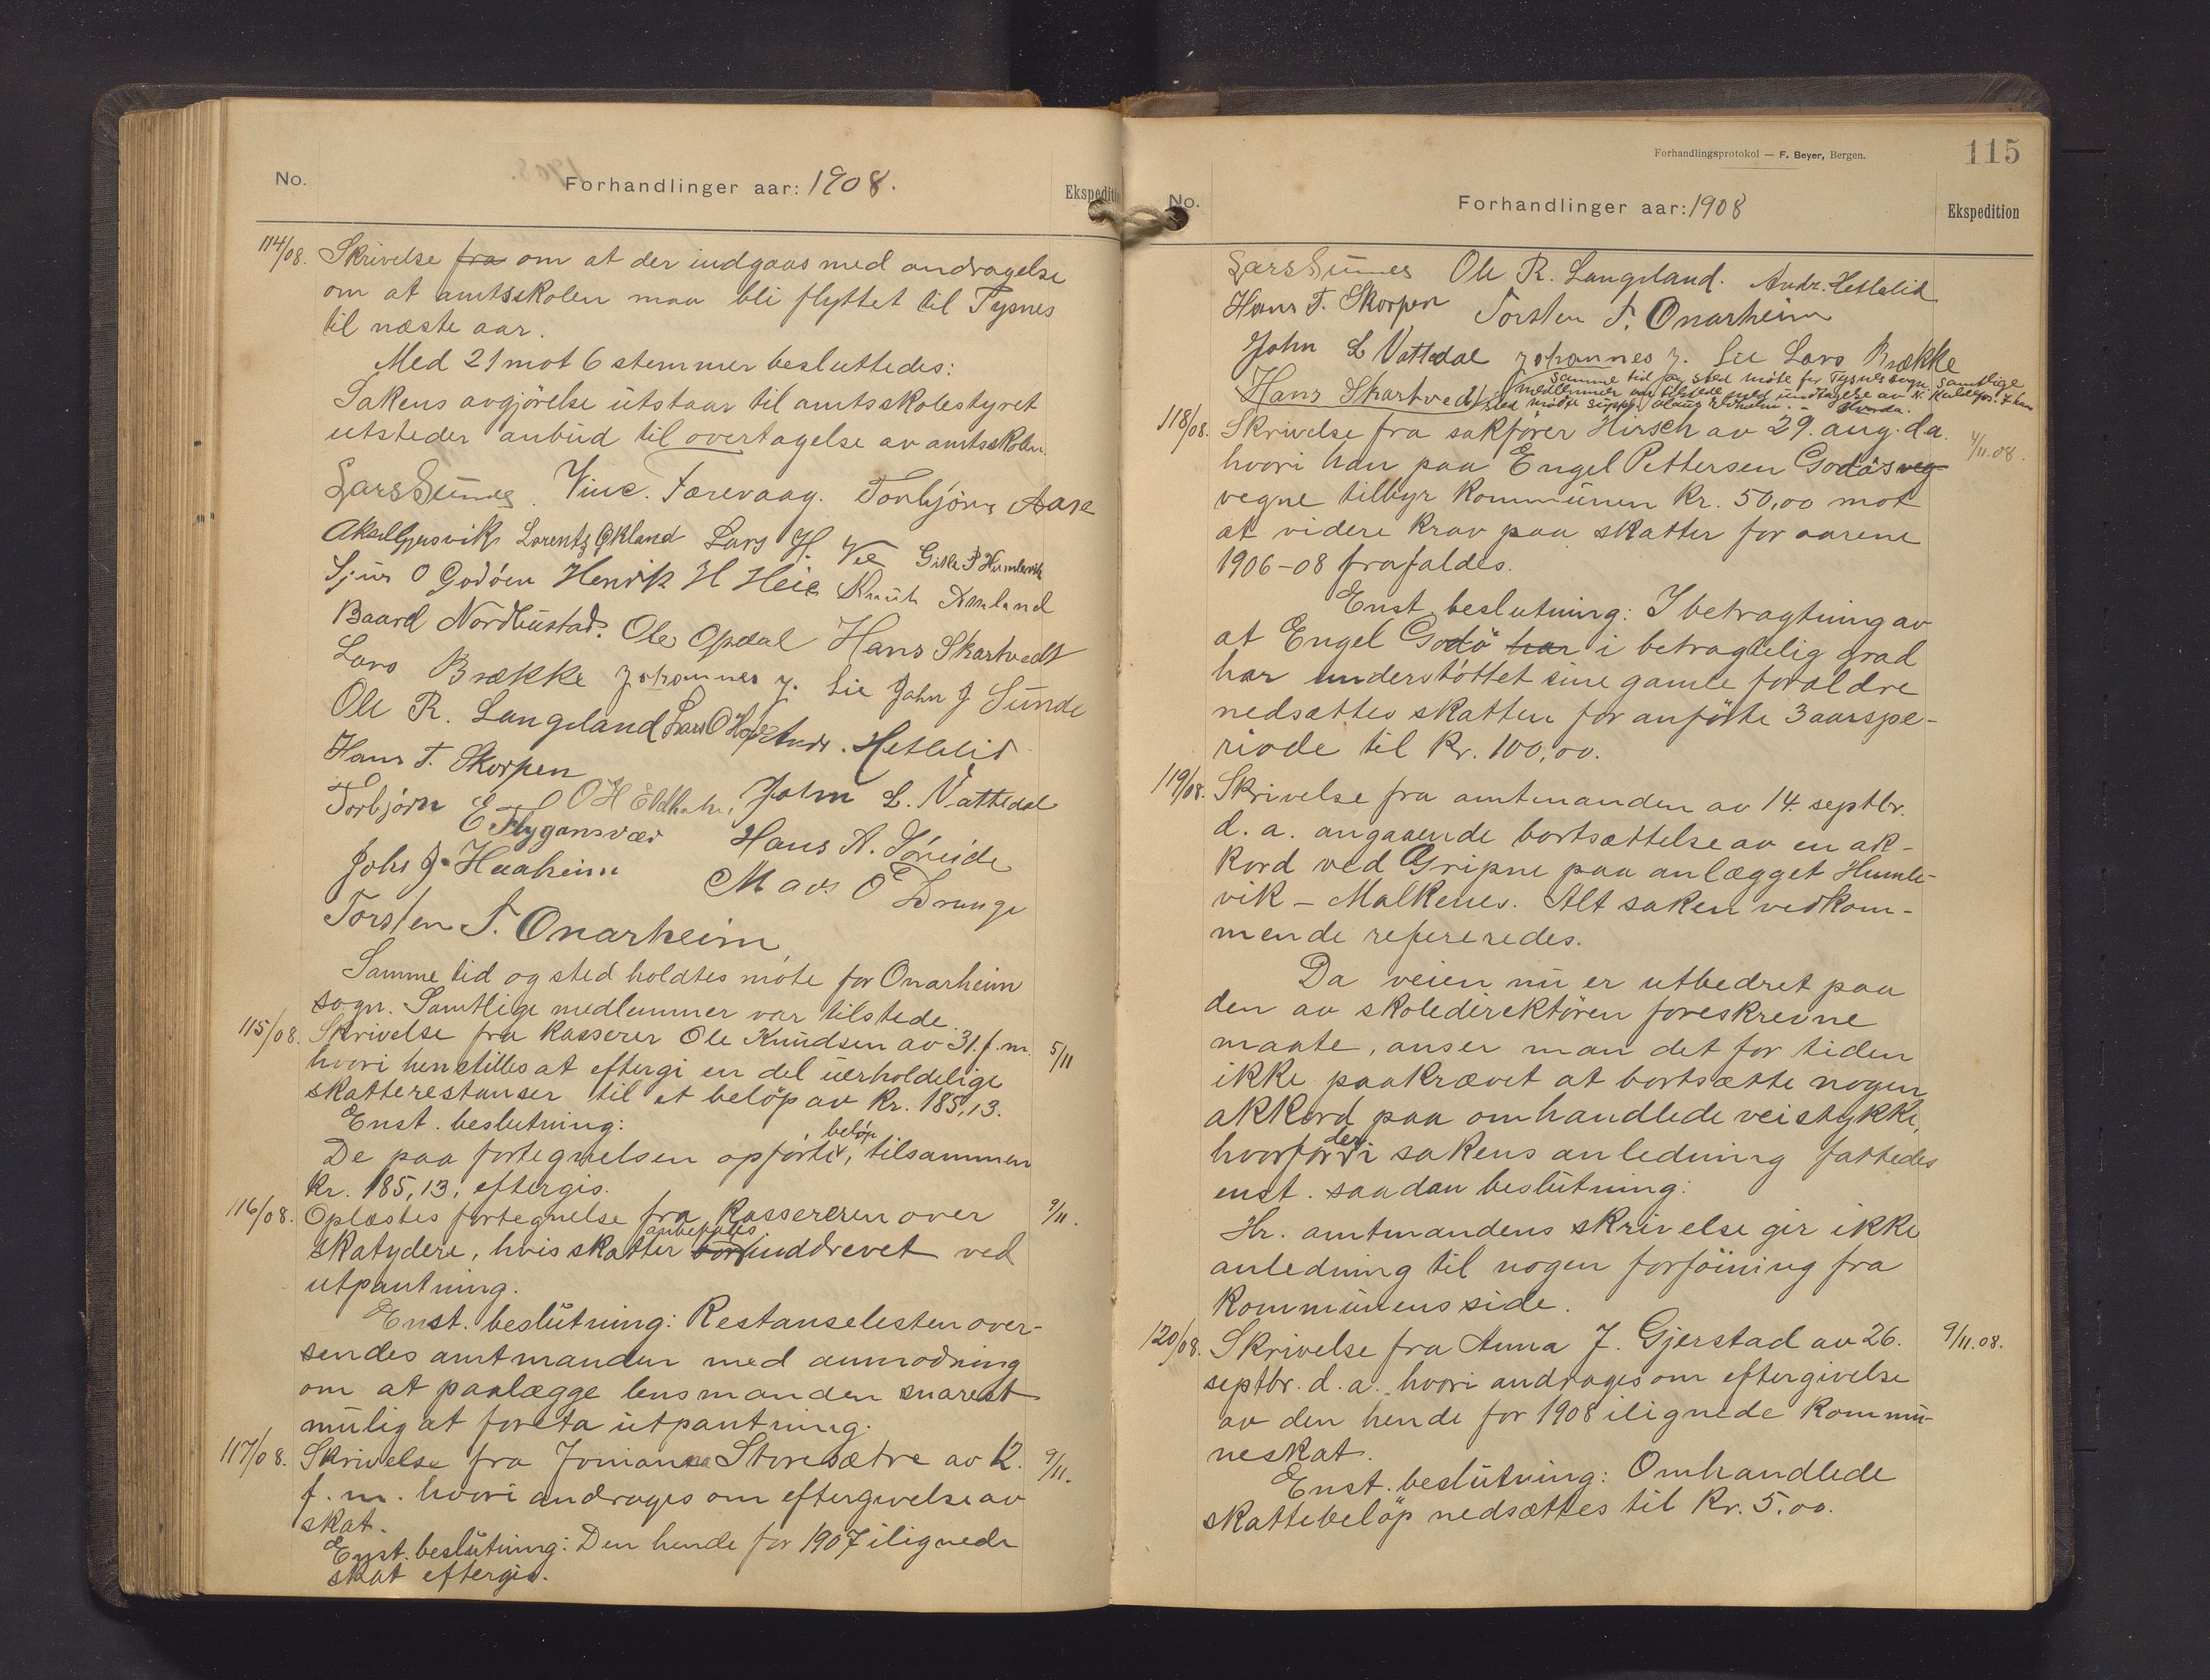 No.
Forhandlinger aar: 1908.
Ekspediti
114/08. Skrivelse fra om at der indgaas med andragelse
om at amtsskolen maa bli flyttet til Tysnes
til næste aar.
Med 21 mot 6 stemmer besluttedes:
Sakens avgjörelse utstaar til amtsskolestyret
utsteder anbud til overtagelse av amtsskolen.
Lars Sunnes. Vinc. Færevaag. Torbjörn Aase
Aksel Gjøsvik Lorentz Økland Lars H. Vee Gitle P Humlevik
Sjur O Godöen Henrik H Heie Knut Amland
Baard Nordbustad. Ole Opdal Hans Skartvedt
Lars Brække Johannes J. Lie John J Sunde
Ole R. Langeland Lars O Hope Andr. Hetlelid
Hans T. Skorpen
Torbjörn E Flygansvær O H Eldholm, John L. Vattedal
Johs J. Haaheim Hans A. Söreide
Mads O Drange
Torsten T. Onarheim
Samme tid og sted holdtes möte for Onarheim
sogn. Samtlige medlemmer var tilstede.
115/08. Skrivelse fra kasserer Ole Knudsen av 31. f. m. 5/11
hvori henstilles at eftergi en del uerholdelige
skatterestanser til et belöp av kr. 185,13.
Enst. beslutning:
De paa fortegnelsen opförte belöp, tilsammen
kr. 185,13, eftergis.
116/08. Oplæstes fortegnelse fra kassereren over 9/11.
skatydere, hvis skatter anbefales bör inddrevet ved
utpantning.
Enst. beslutning: Restanselisten over-
sendes amtmanden med anmodning
om at paalægge lensmanden snarest
mulig at foreta utpantning.
117/08. Skrivelse fra Joniana Storesætre av 12. 9/11.
f. m. hvori andrages om eftergivelse av
skat.
Enst. beslutning: Den hende for 1907 ilignede
skat eftergis.
Forhandlingsprotokol — F. Beyer, Bergen.
115
No.
Forhandlinger aar: 1908
Ekspedition
Lars Sunnes Ole R. Langeland. Andr. Hetlelid
Hans T. Skorpen Torsten T. Onarheim
John L Vattedal Johannes J. Lie Lars Brække
Hans Skartvedt
Samme tid og sted möte for Tysnes sogn. Samtlige
medlemmer var tilstede med undtagelse av
sted mötte suppl.
118/08. Skrivelse fra sakförer Hirsch av 29. aug. d.a. 4/11.08.
hvori han paa Engel Pettersen Godøs veg
vegne tilbyr kommunen kr. 50,00 mot
at videre krav paa skatter for aarene
1906-08 frafaldes.
Enst. beslutning: I betragtning av
at Engel Godö har i betragtelig grad
har understöttet sine gamle foraldre
nedsættes skatten for anförte 3 aarspe-
riode til kr. 100,00.
119/08. Skrivelse fra amtmanden av 14 septbr.
d. a. angaaende bortsættelse av en ak-
kord ved Gripne paa anlægget Humle-
vik - Malkenes. Alt saken vedkom-
mende refereredes.
Da veien nu er utbedret paa
den av skoledirektören foreskrevne
maate, anser man det for tiden
ikke paakrævet at bortsætte nogen
akkord paa omhandlede veistykke,
hvorfor der i sakens anledning fattedes
enst. saadan beslutning:
Hr. amtmandens skrivelse gir ikke
anledning til nogen forföining fra
kommunens side.
120/08. Skrivelse fra Anna J. Gjerstad av 26. 9/11.08.
septbr. d. a. hvori andrages om eftergivelse
av den hende for 1908 ilignede kommu-
neskat.
Enst. beslutning: Omhandlede
skattebelöp nedsættes til kr. 5.00.